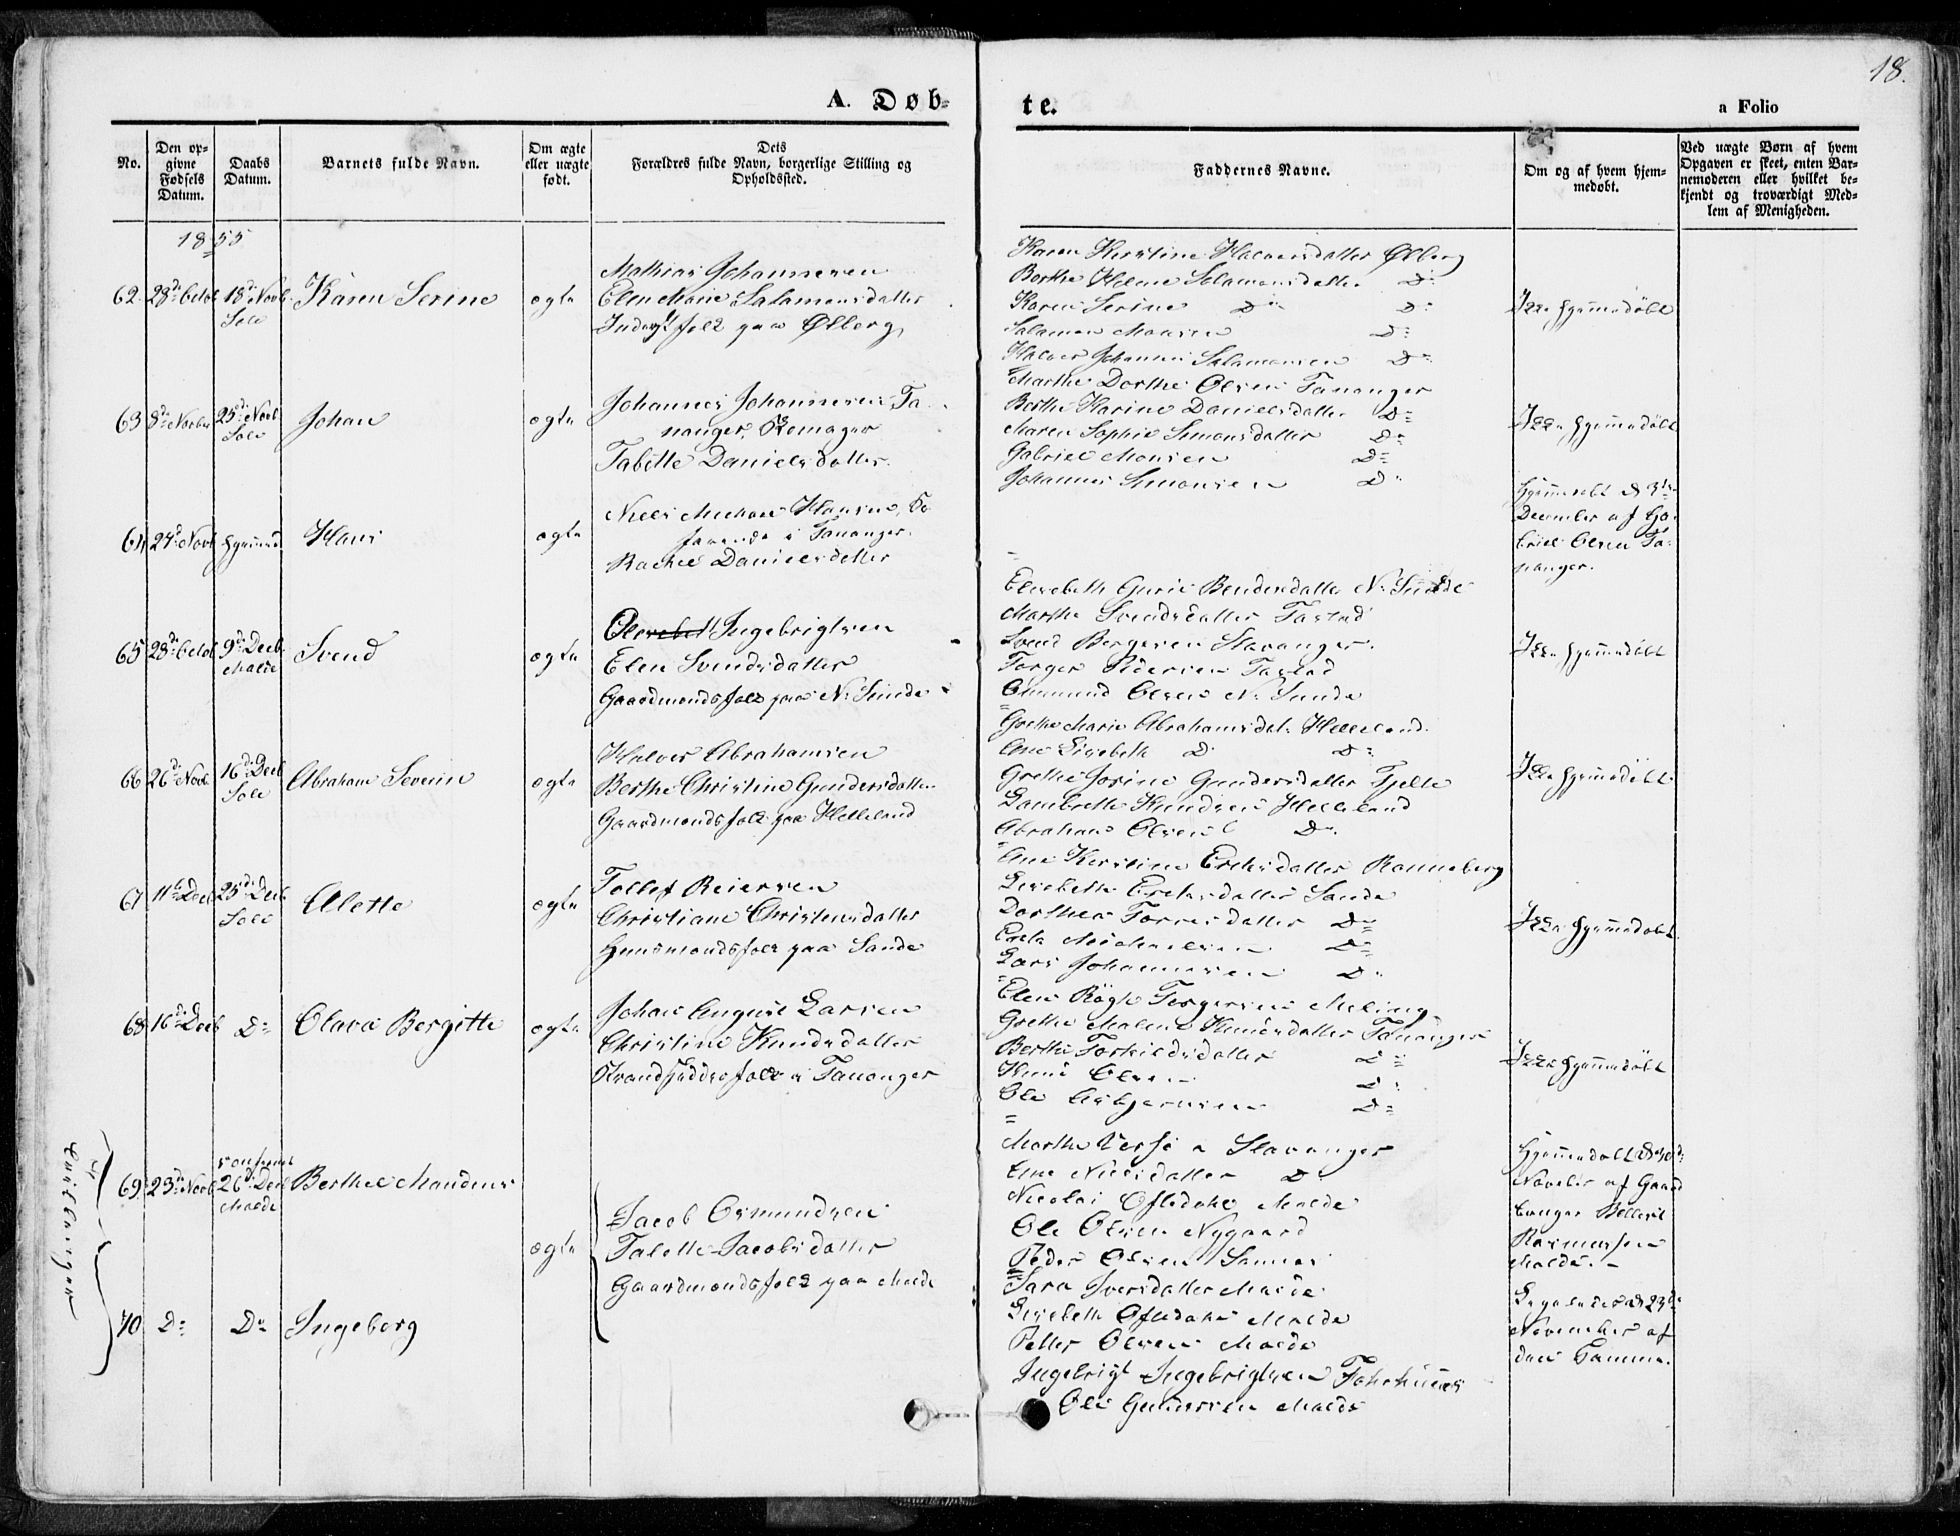 18.
A. Døb-
te.
a Folio
No.
Den op-
givne
Fødsels
Datum.
Daabs
Datum.
Barnets fulde Navn.
Om ægte
eller uægte
født.
Dets
Forældres fulde Navn, borgerlige Stilling og
Opholdssted.
Faddernes Navne.
Om og af hvem hjem-
medøbt.
Ved uægte Børn af hvem
Opgaven er skeet, enten Bar-
nemoderen eller hvilket be-
kjendt og troværdigt Med-
lem af Menigheden.
1855
62. 28de Octob 18de Novb. Karen Serine ægte
Sole
Mathias Johannesen
Elen Marie Salamonsdatter
paa Ølberg
Karen Kirstine Halvorsdatter Ølberg
Berthe Helene Salamonsdatter Do
Karen Serine Do Do
Salamon Monsen Do
Halvor Johannes Salamonsen Do
Ikke hjemmedøbt
63 8de Novbr 25de Novb Johan ægte
Sole
Johannes Johannesen Ta-
nanger,
Tabitte Danielsdatter.
Marthe Dorthe Olsen Tananger
Berthe Karine Danielsdatter Do
Maren Sophie Simonsdatter Do
Gabriel Monsen Do
Johannes Simonsen Do
Ikke hjemmedøbt
64 24de Novb hjemmed Hans ægte
Niels Michael Hansen,
i Tananger.
Rachel Danielsdatter
Hjemmedøbt d 3die
December af Ga-
briel Olsen Ta-
nanger.
65 28de Octob 9de Decb. Svend ægte
Malde
Ole Ingebrigtsen
Elen Svendsdatter
Gaardmandsfolk paa N. Sunde
Elisebeth Gurie N. Sunde
Marthe Svendsdatter Tastad
Svend Bergesen Stavanger.
Torger Pedersen Tastad
Osmund Olsen N. Sunde
Ikke hjemmedøbt
66 26de Novb. 16de Decb Abraham Severin ægte
Sole
Halvor Abrahamsen
Berthe Christine Gundersdatter
Gaardmandsfolk paa Helleland
Grethe Marie Abrahamsdat. Helleland.
Ane Lisebeth Do Do
Grethe Josine Gundersdatter Tjelte
Lambrette Knudsen Helleland
Abraham Olsen Do
Ikke hjemmedøbt
67 11te Decb 25de Decb. Alette ægte
Sole
Tollef Reiersen
Christiane Christensdatter
Huusmandsfolk paa Sande
Ane Kirstine Eriksdatter Ranneberg
Lisebeth Eriksdatter Sande
Dorthea Torresdatter Do
Erik Michaelsen Do
Lars Johannesen Do
Ikke hjemmedøbt.
68 16de Decb Do Olava Bergitte ægte
Johan August Larsen
Christine Knudsdatter
Strandsidderfolk i Tananger
Elen Torgersen Meling
Grethe Malene Knudsdatter Tananger
Berthe Torkildsdatter Do
Knud Olsen Do
Ole Asbjørnsen Do
Ikke hjemmedøbt
Tvillinger
69. 23de Novb 26de Decb Berthe Mandine
Malde
ægte
Jacob Osmundsen
Talette Jacobsdatter
Gaardmandsfolk paa Malde
Marthe Stavanger
Ane Nielsdatter Do
Nicolai Oftedahl Malde
Ole Olsen Nygaard
Peder Olsen
Hjemmedøbt
November af Gaard
bruger
Rasmussen
Malde.
70 Do Do Ingeborg
Sara Iversdatter Malde
Lisebeth Oftedahl Malde
Petter Olsen Malde
Ingebrigt Ingebrigtsen
Ole Gundersen Malde
23de
November af
den Samme.